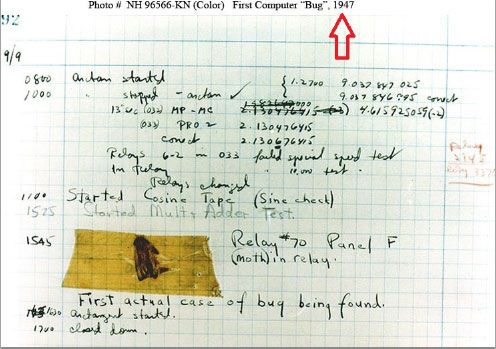 Photo # NH 96566-KN (Color) First Computer "Bug", 1947
92
9/9
0800 antan started
1000 " stopped - antan ✓ { 1.2700 9.037 847 025
9.037 846 995 correct
13"uc (032) MP - MC 2.130476415 4.615925059(-2)
(033) PRO 2 2.130476415
correct 2.130676415
Relays 6-2 in 033 failed special speed test
In Relay " 10,000 test.
Relays changed
Relay
2145
Relay 3370
1100 Started Cosine Tape (Sine check)
1525 Started Mult + Adder Test.
1545 Relay #70 Panel F
(Moth) in relay.
First actual case of bug being found.
1630 antangent started.
1700 closed down.